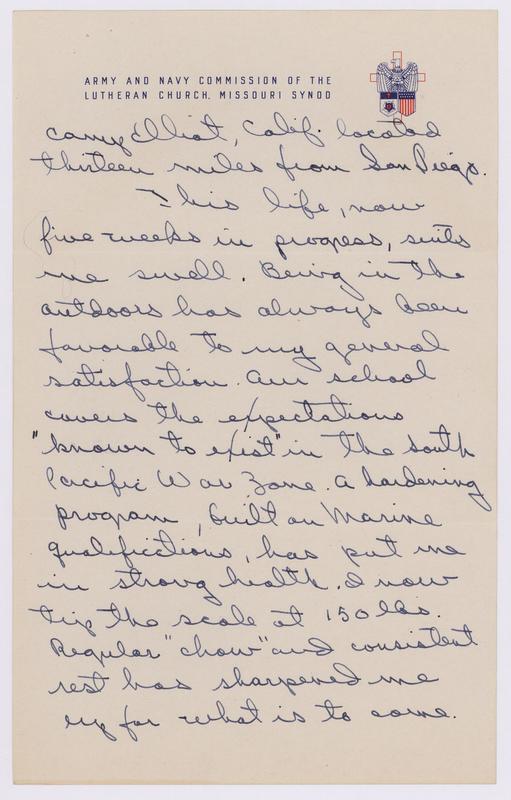 ARMY AND NAVY COMMISSION OF THE
LUTHERAN CHURCH, MISSOURI SYNOD
camp Elliot, Calif. located
thirteen miles from San Diego.
This life, now
five weeks in progress, suits
me swell. Being in the
outdoors has always been
favorable to my general
satisfaction. Our school
covers the expectations
"known to exist" in the South
Pacific War Zone. A hardening
program, built on Marine
qualifictions, has put me
in strong health. I now
tip the scale at 150 lbs.
Regular "chow" and consistent
rest has sharpened me
up for what is to come.